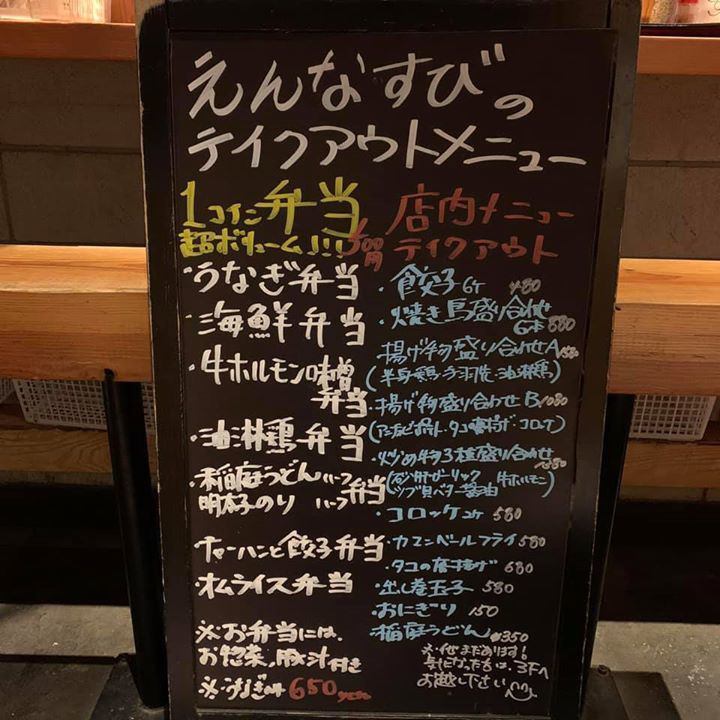 えんなすびの
テイクアウトメニュー
1コイン弁当
超ボリューム!!!
・うなぎ弁当
・海鮮弁当
・牛ホルモン味噌
弁当
・油淋鶏弁当
・稲庭うどんハーフ
明太子のりハーフ弁当
・チャーハンと餃子弁当
・オムライス弁当
※お弁当には、
お惣菜、豚汁付き
※うなぎ丼650yen
店内メニュー
テイクアウト
・餃子6ケ ¥480
・焼き鳥盛り合わせ
6本 880
・揚げ物盛り合わせA
(半身鶏・手羽先・油淋鶏)
・揚げ物盛り合わせB 1080
タコ唐揚げ・コロッケ)
・炒め物3種盛り合わせ
ガーリック 牛ホルモン
ツブ貝バター醤油
・コロッケ2ケ 580
・カマンベールフライ 580
・タコの唐揚げ 680
・出し巻玉子 580
・おにぎり 150
・稲庭うどん ¥350
※他まだあります!
気になった方は、3Fへ
お越し下さい